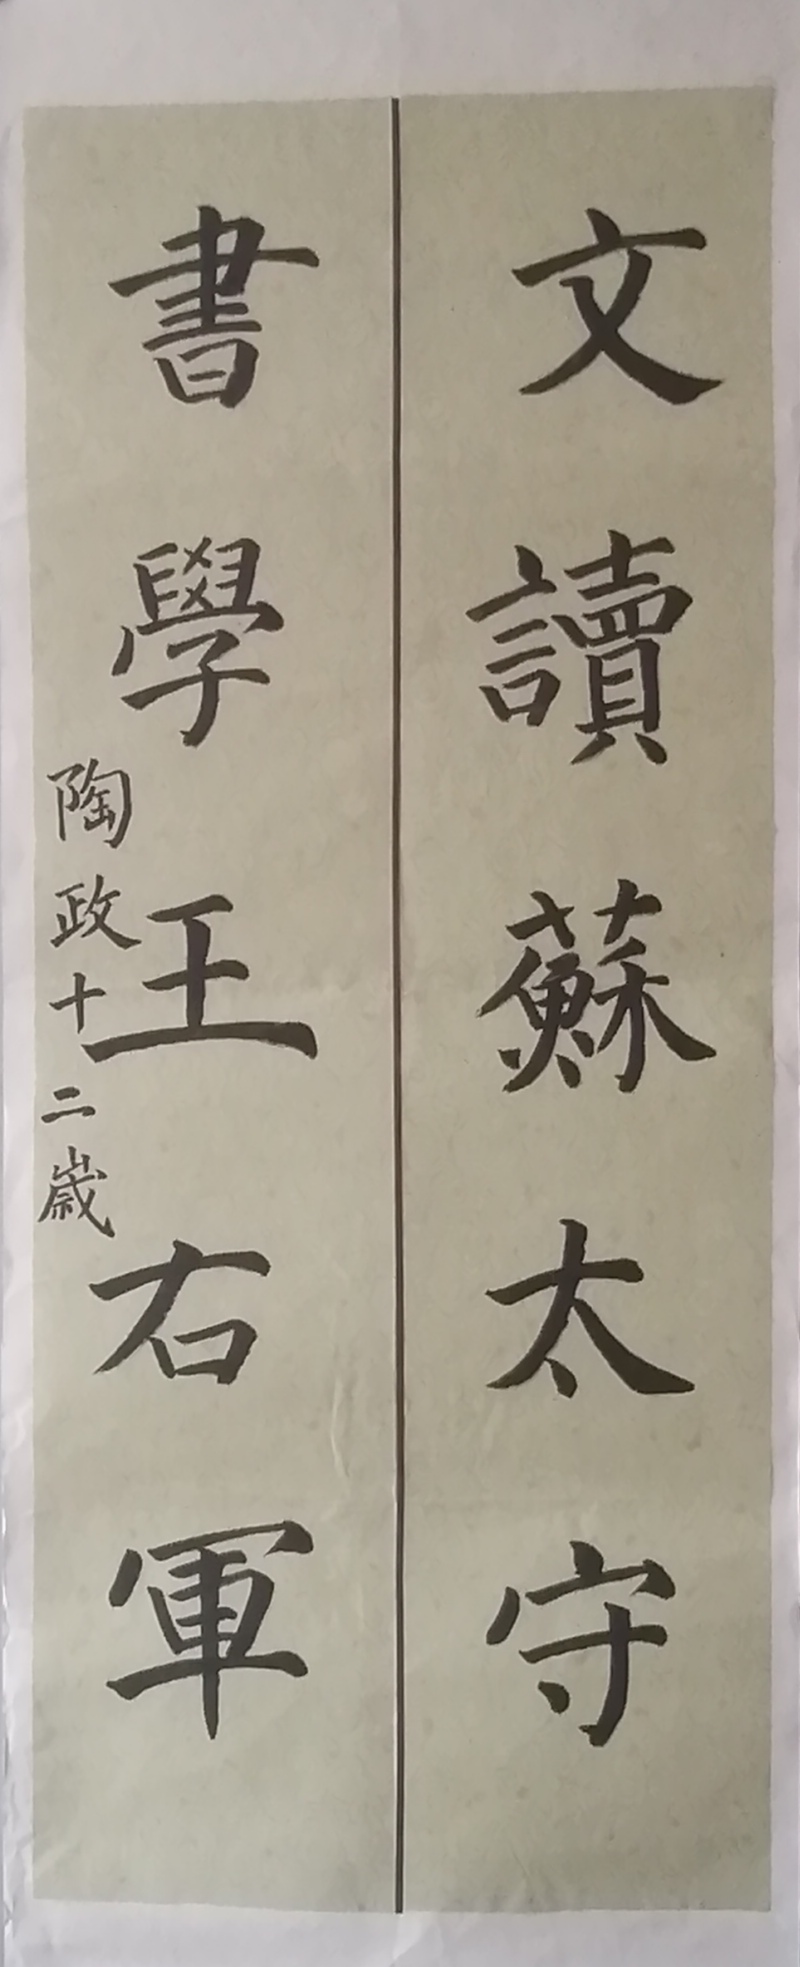 文讀蘇太守
書學王右軍
陶政十二歲